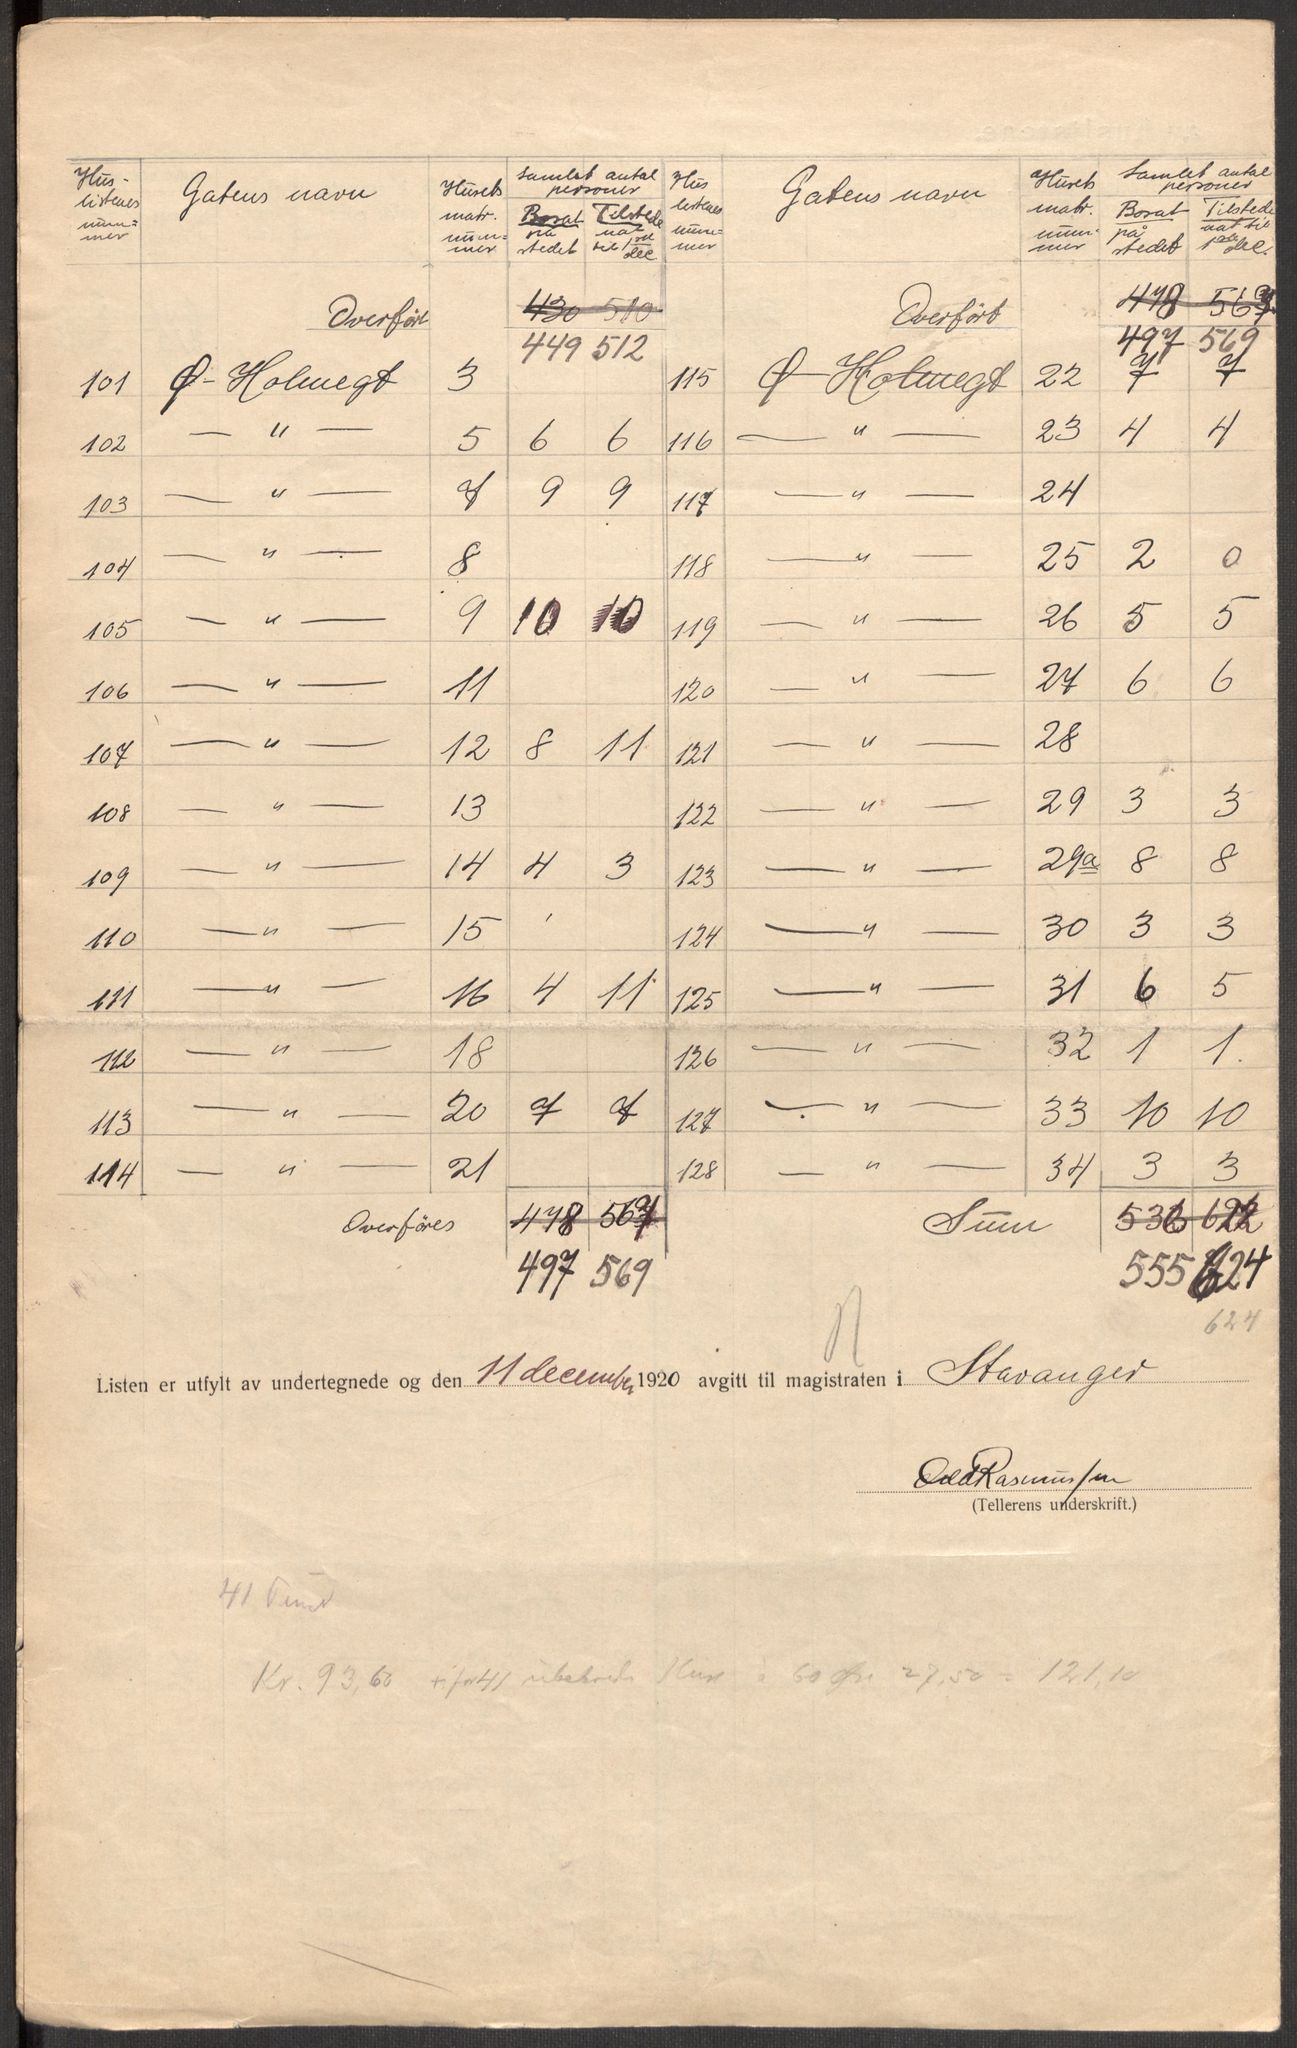 Hus- Gatens navn Husets Samlet antal
listenes matr. personer
num= num= Bosat Tilstede
mer mer på stedet nat til 1ste dec
Overført 430 510
449 512
101 Ø-Holmegt 3
102 — " — 5 6 6
103 — " — 7 9 9
104 — " — 8
105 — " — 9 10 10
106 — " — 11
107 — " — 12 8 11
108 — " — 13
109 — " — 14 4 3
110 — " — 15
111 — " — 16 4 11
112 — " — 18
113 — " — 20 7 7
114 — " — 21
Overføres 478 567
497 569
Hus Gatens navn Husets Samlet antal
listenes matr. personer
num= num= Bosat Tilstede
mer mer på stedet nat til 1ste dec.
Overført 478 567
497 569
115 Ø-Holmegt 22 7 7
116 — " — 23 4 4
117 — " — 24
118 — " — 25 2 0
119 — " — 26 5 5
120 — " — 27 6 6
121 — " — 28
122 — " — 29 3 3
123 — " — 29a 8 8
124 — " — 30 3 3
125 — " — 31 6 5
126 — " — 32 1 1.
127 — " — 33 10 10
128 — " — 34 3 3
Sum 536 622
555 624
624
Listen er utfylt av undertegnede og den 11 december 1920 avgitt til magistraten i Stavanger
Odd Rasmussen
(Tellerens underskrift.)
41
Kr. 93,60 41 ubebodde Hus à 60 øre 27,50 = 121,10